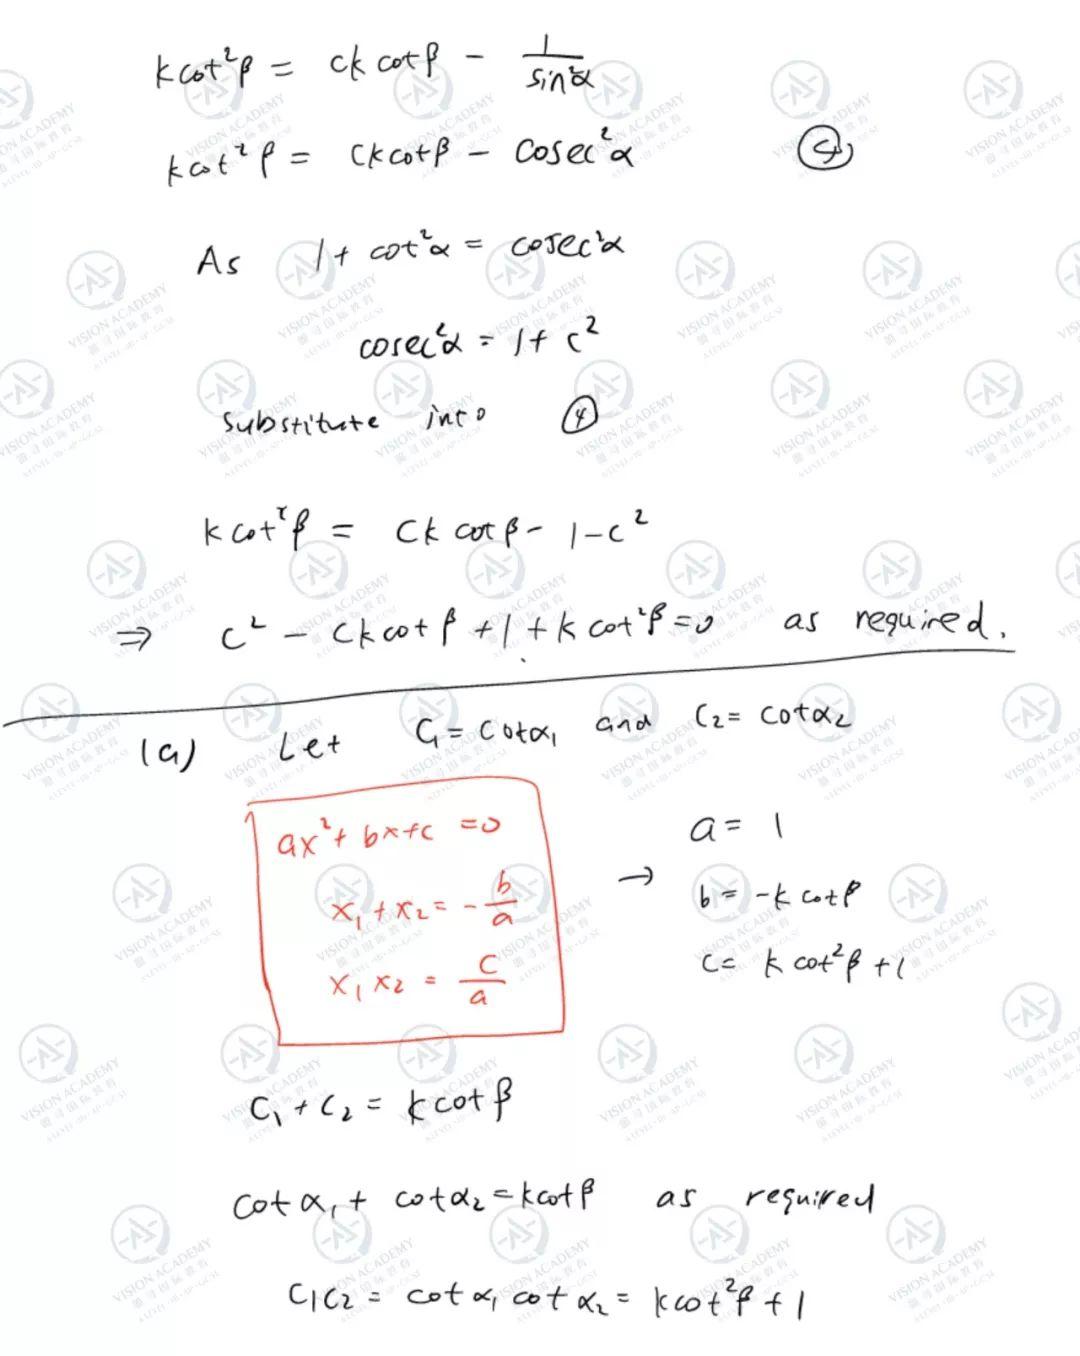 k cot²β = ck cotβ - 1/sin²α
k cot²β = ck cotβ - cosec²α ④
As 1 + cot²α = cosec²α
cosec²α = 1 + c²
Substitute into ④
k cot²β = ck cotβ - 1 - c²
⇒ c² - ck cotβ + 1 + k cot²β = 0 as required.
(a) Let C₁ = cotα₁ and C₂ = cotα₂
ax² + bx + c = 0
x₁ + x₂ = -b/a
x₁ x₂ = c/a
→ a = 1
b = -k cotβ
c = k cot²β + 1
C₁ + C₂ = k cotβ
cotα₁ + cotα₂ = k cotβ as required
C₁C₂ = cotα₁ cotα₂ = k cot²β + 1
VISION ACADEMY